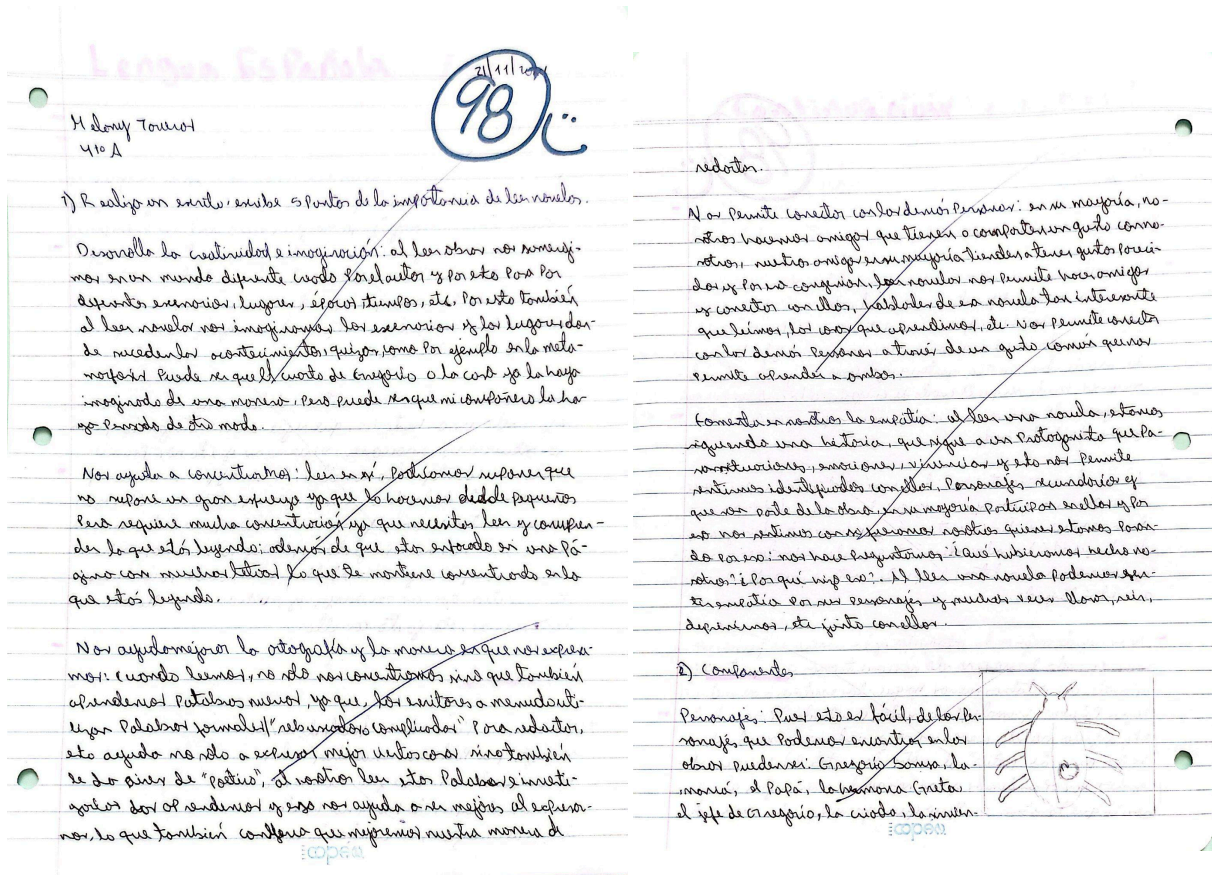 21/11/20
98
Melony
4to A
1) Realiza un escrito, escribe 5 puntos de la importancia de leer novelas.
Desarrolla la creatividad e imaginación: al leer obras nos sumergi-
mos en un mundo diferente creado por el autor y por esto pasa por
diferentes escenarios, lugares, épocas, tiempos, etc. Por esto también
al leer novelas nos imaginamos los escenarios y los lugares don-
de suceden los acontecimientos, quizas, como por ejemplo en la meta-
morfosis puede ser que el cuarto de Gregorio o la casa yo la haya
imaginado de una manera, pero puede ser que mi compañero la ha-
ya pensado de otro modo.
Nos ayuda a concentrarnos: leer en sí, podríamos suponer que
no supone un gran esfuerzo ya que lo hacemos desde pequeños
pero requiere mucha concentración, ya que necesitas leer y compren-
der lo que estás leyendo; además de que estas enfocado en una pá-
gina con muchas letras lo que te mantiene concentrado en lo
que estás leyendo.
Nos ayuda mejorar la ortografía y la manera en que nos expresa-
mos: cuando leemos, no solo nos concentramos sino que también
aprendemos palabras nuevas, ya que, los escritores a menudo uti-
lizan palabras formales/"rebuscadas complicadas" para redactar,
esto ayuda no solo a expresar mejor ciertas cosas sino también
le da aires de "poético", al nosotros leer estas palabras e investi-
garlas las aprendemos y eso nos ayuda a ser mejores al expresar-
nos, lo que también conlleva que mejoremos nuestra manera de
copén
redactar.
Nos permite conectar con los demás personas: en su mayoría, no-
sotros hacemos amigos que tienen o comparten un gusto con no-
sotros, nuestros amigos en su mayoría tienden a tener gustos pareci-
dos y por eso congenian, leer novelas nos permite hacer amigos
y conectar con ellos, hablarles de esa novela tan interesante
que leímos, las cosas que aprendimos, etc. Nos permite conectar
con los demás personas a través de un gusto común que nos
permite aprender a ambos.
Fomenta en nosotros la empatía: al leer una novela, estamos
siguiendo una historia, que sigue a un protagonista que pa-
sa situaciones, emociones, vivencias y esto nos permite
sentirnos identificados con ellos, personajes secundarios y
que son parte de la obra, en su mayoría participan en ellas y por
eso nos sentimos como si fueramos nosotros quienes estamos pasan-
do por eso; nos hace preguntarnos: ¿Qué hubieramos hecho no-
sotros? ¿Por qué hizo eso?. Al leer una novela podemos sen-
tir empatía por sus personajes y muchas veces llorar, reír,
deprimirnos, etc junto con ellos.
2) Componentes
Personajes: Pues esto es fácil, de los per-
sonajes que podemos encontrar en las
obras pueden ser: Gregorio Samsa, la
mamá, el Papá, la hermana Greta
el jefe de Gregorio, la criada, la sirvien-
copén